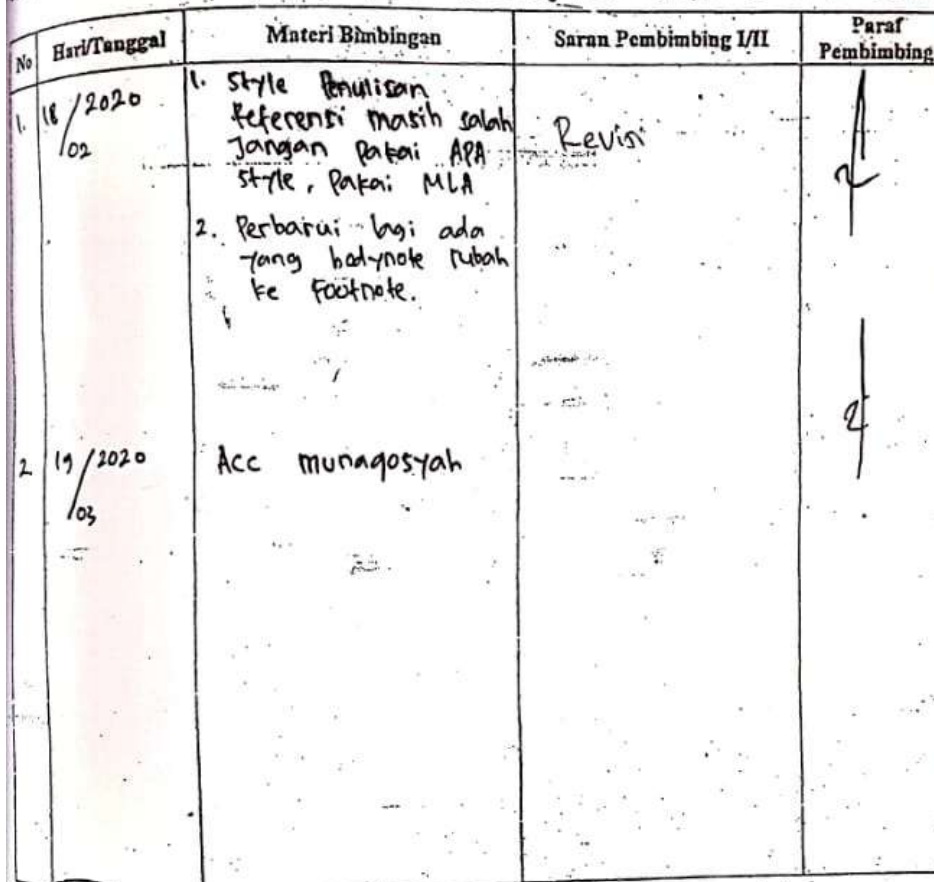 No
Hari/Tanggal
Materi Bimbingan
Saran Pembimbing I/II
Paraf
Pembimbing
1.
18/2020
/02
1. Style Penulisan
Referensi masih salah
Jangan Pakai APA
style, Pakai MLA
2. Perbarui lagi ada
yang bodynote rubah
ke Footnote.
Revisi
2
19/2020
/03
Acc munaqosyah